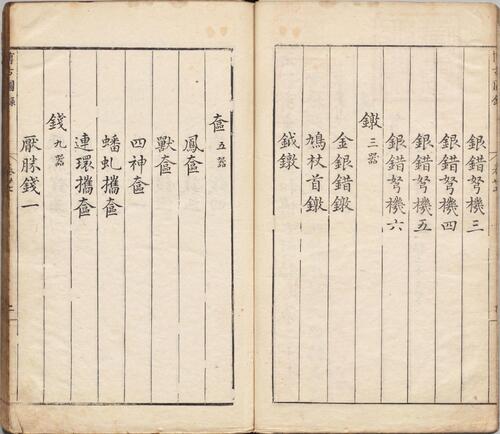 銀錯弩機三
銀錯弩機四
銀錯弩機五
銀錯弩機六
鐓三器
金銀錯鐓
鳩杖首鐓
鉞鐓
奩五器
鳳奩
獸奩
四神奩
蟠虬攜奩
連環攜奩
錢九器
厭勝錢一